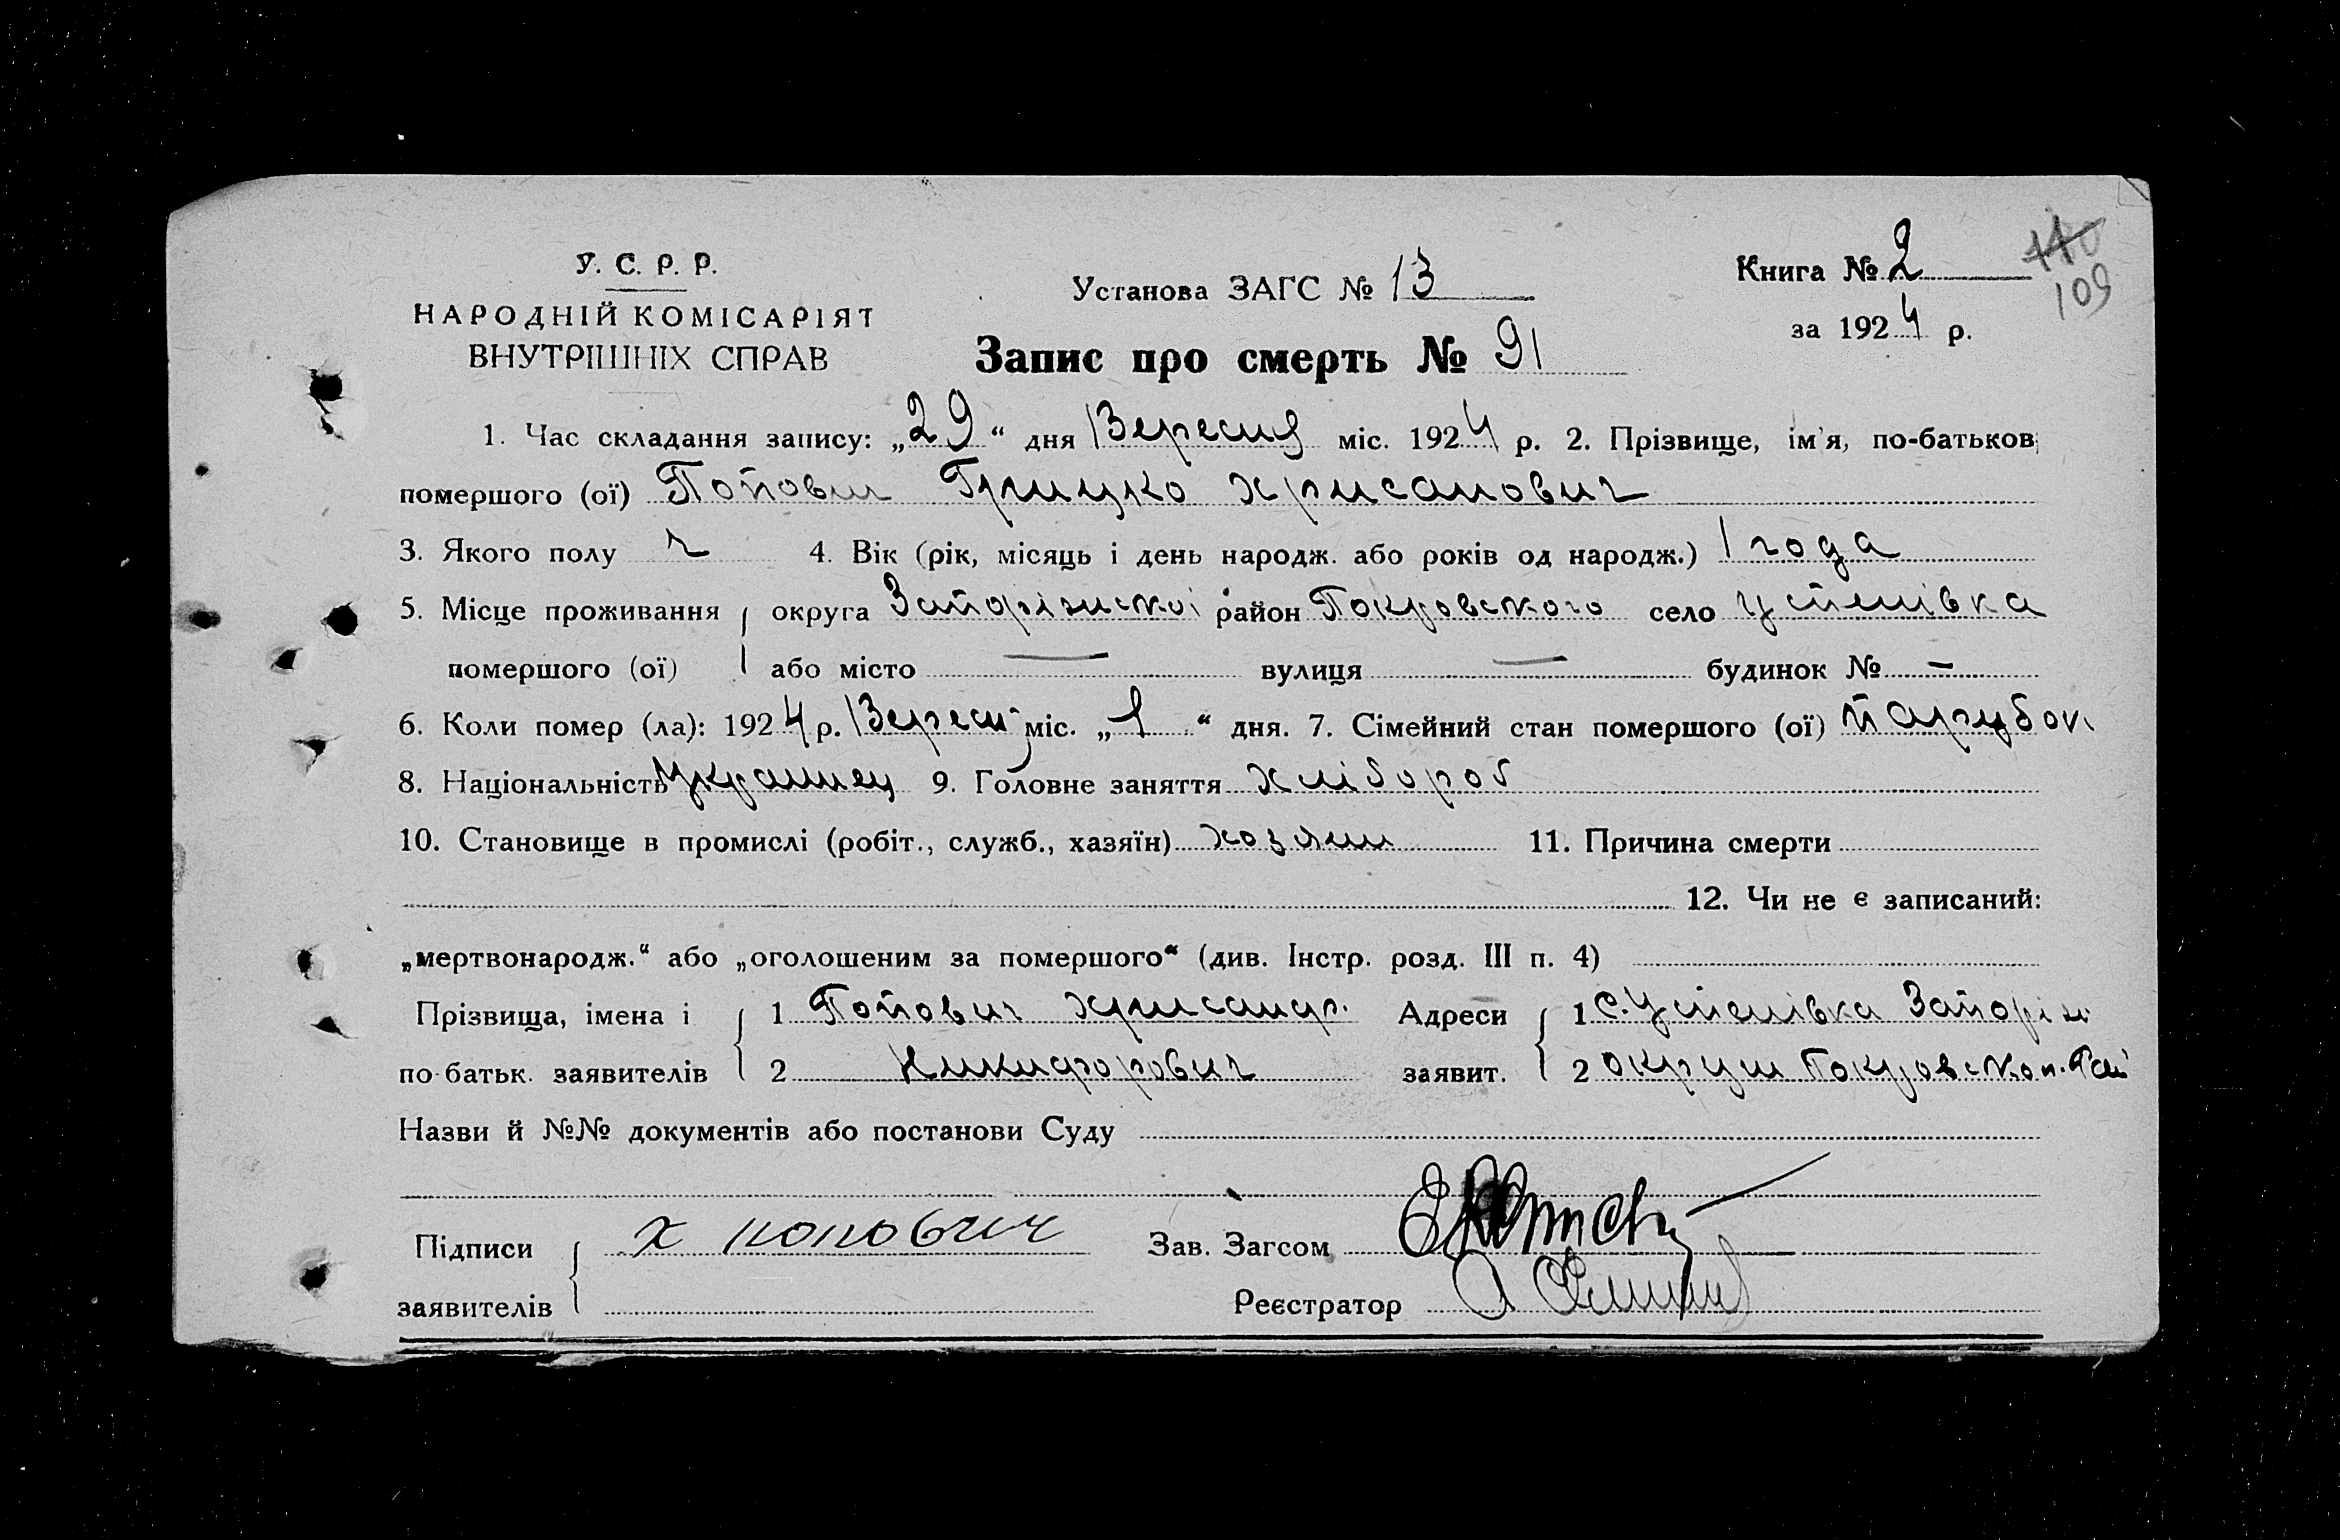 У. С. Р. Р.
НАРОДНІЙ КОМІСАРІЯТ
ВНУТРІШНІХ СПРАВ
Установа ЗАГС № 13
Запис про смерть № 91
Книга № 2
за 1924 р.
110
109
1. Час складання запису: „29“ дня Вересня міс. 1924 р. 2. Прізвище, ім'я, по-батькові
помершого (ої) Попович Грицко Хрисанович
3. Якого полу ч 4. Вік (рік, місяць і день народж. або років од народж.) 1 года
5. Місце проживання округа Запорізської район Покровского село Успенівка
помершого (ої) або місто — вулиця — будинок № —
6. Коли помер (ла): 1924 р. Вересня міс. „1“ дня. 7. Сімейний стан помершого (ої) парубок
8. Національність Украинец 9. Головне заняття хлібороб
10. Становище в промислі (робіт., служб., хазяїн) хозяин 11. Причина смерти
12. Чи не є записаний:
„мертвонародж.“ або „оголошеним за помершого“ (див. Інстр. розд. III п. 4)
Прізвища, імена і 1 Попович Хрисанф. Адреси 1 с. Успенівка Запоріз
по-батьк. заявителів 2 Никифорович заявит. 2 округи Покровского Рай
Назви й №№ документів або постанови Суду
Підписи Х попович Зав. Загсом
заявителів Реєстратор